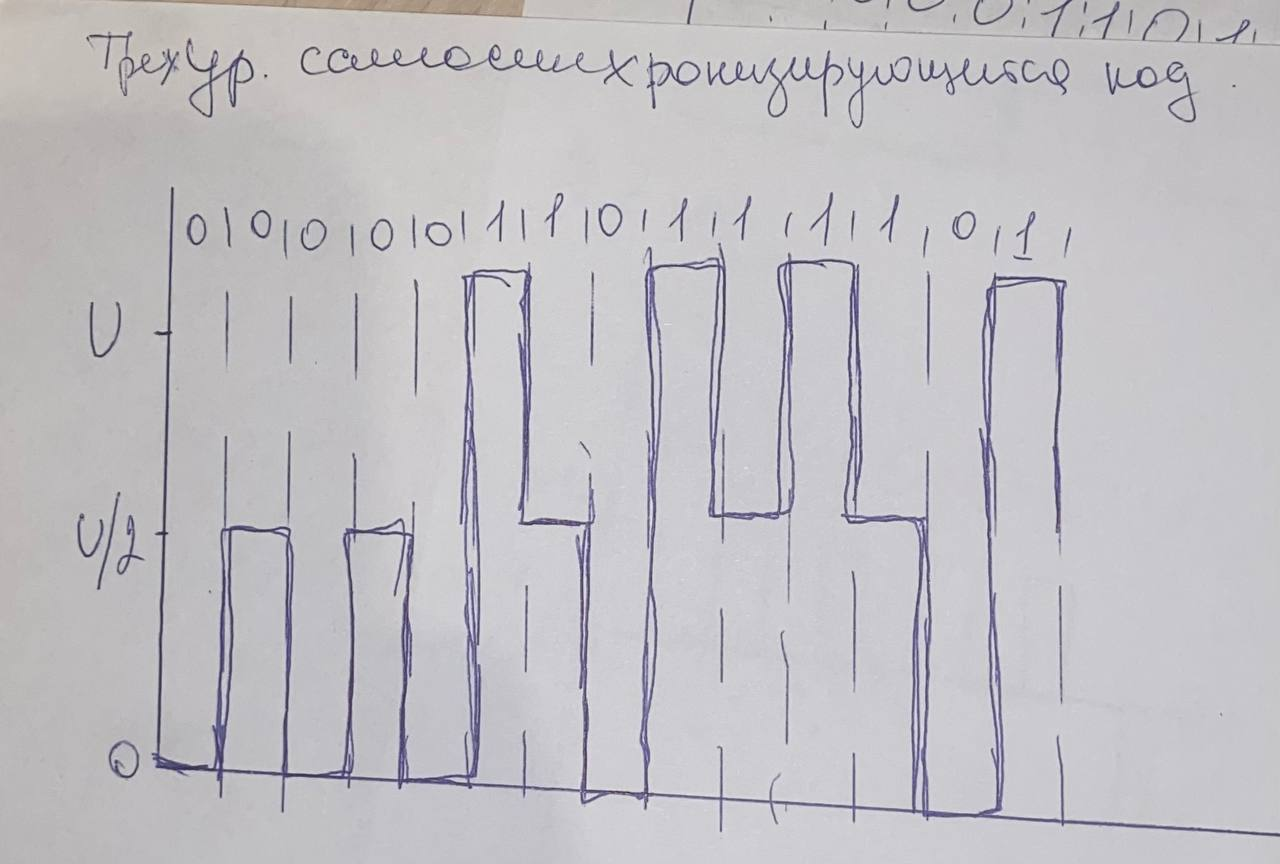 0.0.1.1.0.1.
Трехур. самосинхронизирующийся код.
0|0|0|0|0|1|1|0|1|1|1|1|0|1|
U
U/2
0